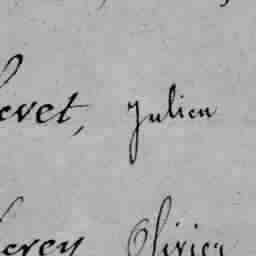 evet, Julien
erey Olivier